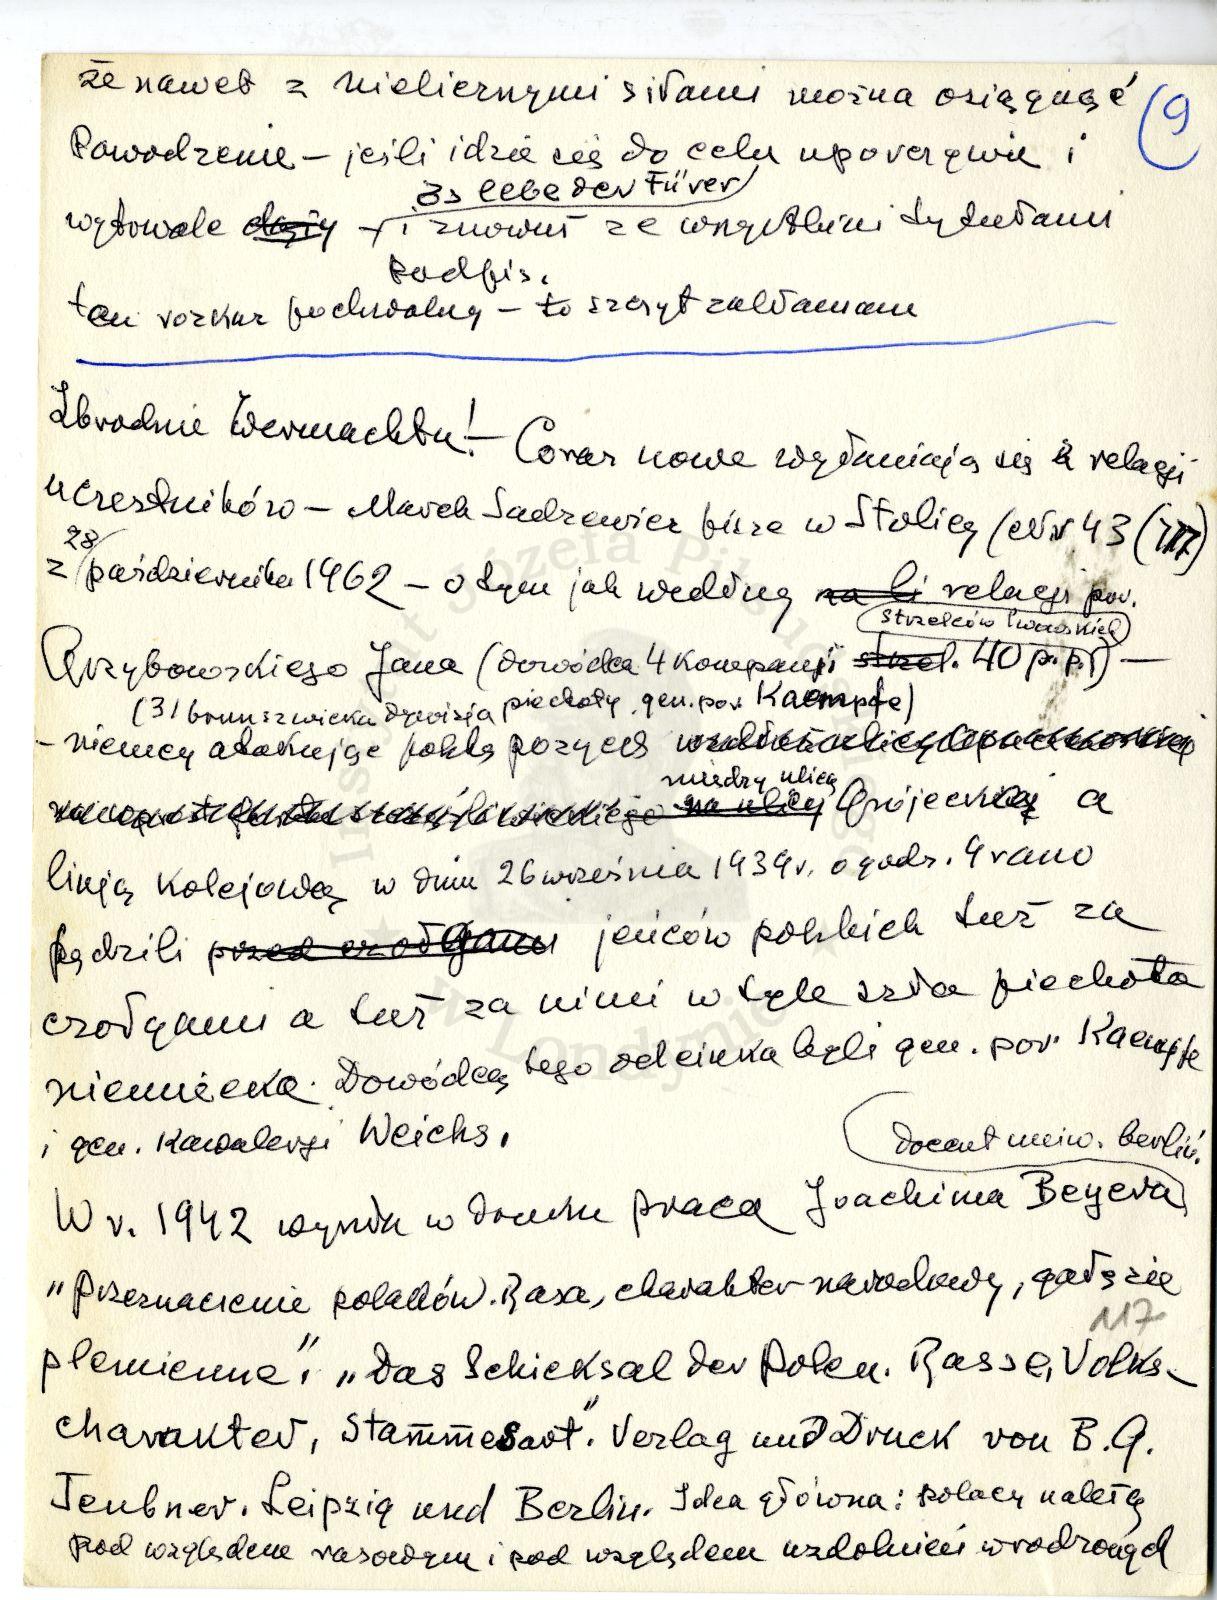 że nawet z nielicznymi siłami można osiągnąć
9
Powodzenie – jeśli idzie się do celu uporczywie i
Es lebe der Fürer
wytrwale – i znowuż ze wszystkimi tytułami
podpis.
ten rozkaz pochwalny – to szczyt zakłamania
Zbrodnie Wermachtu! – Coraz nowe wyłaniają się z relacji
uczestników – Marek Sadzewicz pisze w Stolicy (Nr 43
z 28 października 1962 – o tym jak według relacji por.
strzelców lwowskich
Grzybowskiego Jana (dowódca 4 kompanji 40 p.p) –
(31 brunszwicka dywizja piechoty gen. por. Kaempfe)
– niemcy atakując polską pozycję
między ulicą
Grójecką a
linją kolejową w dniu 26 września 1939 r. o godz. 9 rano
pędzili jeńców polskich tuż za
czołgami a tuż za nimi w tyle szła piechota
niemiecka. Dowódcą tego odcinka byli gen. por. Kaempfe
i gen. Kawalerji Weichs.
docent uniw. berliń.
W r. 1942 wyszła w druku praca Joachima Beyera
„Przeznaczenie polaków. Rasa, charakter narodowy, gałęzie
117
plemienne". „Das Schicksal der Polen. Rasse, Volks-
charakter, Stammesart". Verlag und Druck von B. G.
Teubner. Leipzig und Berlin. Idea główna: polacy należą
pod względem rasowym i pod względem uzdolnień wrodzonych
Instytut Józefa Piłsudskiego
w Londynie